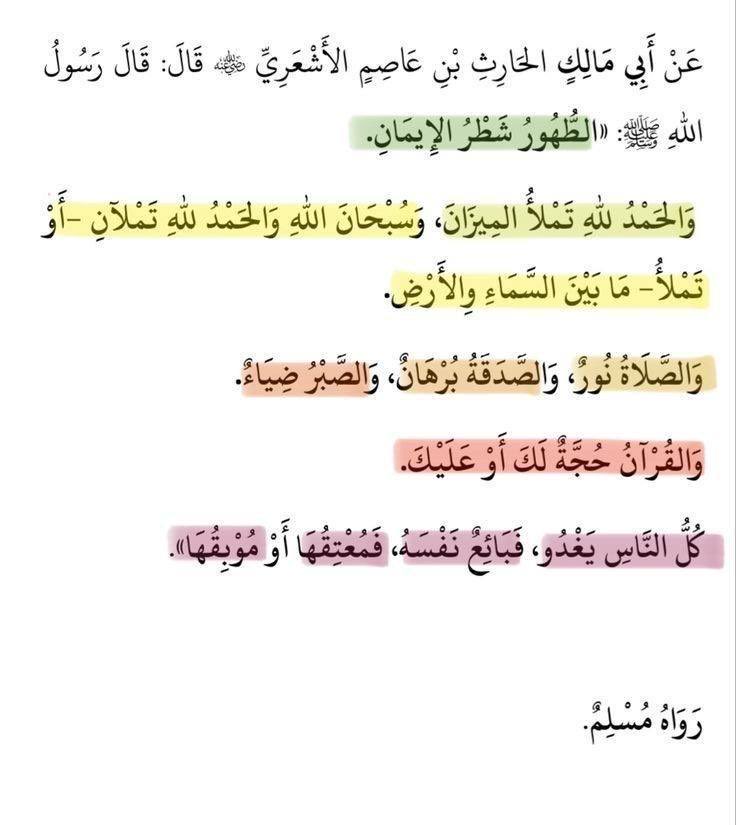 عَنْ أَبِي مَالِكٍ الحَارِثِ بْنِ عَاصِمٍ الأَشْعَرِيِّ ﵁ قَالَ: قَالَ رَسُولُ
اللهِ ﷺ: «الطُّهُورُ شَطْرُ الإِيمَانِ.
وَالحَمْدُ للهِ تَمْلَأُ المِيزَانَ، وَسُبْحَانَ اللهِ وَالحَمْدُ للهِ تَمْلَآنِ -أَوْ
تَمْلَأُ- مَا بَيْنَ السَّمَاءِ وِالأَرْضِ.
وَالصَّلَاةُ نُورٌ، وَالصَّدَقَةُ بُرْهَانٌ، وَالصَّبْرُ ضِيَاءٌ.
وَالقُرْآنُ حُجَّةٌ لَكَ أَوْ عَلَيْكَ.
كُلُّ النَّاسِ يَغْدُو، فَبَائِعٌ نَفْسَهُ، فَمُعْتِقُهَا أَوْ مُوْبِقُهَا».
رَوَاهُ مُسْلِمٌ.